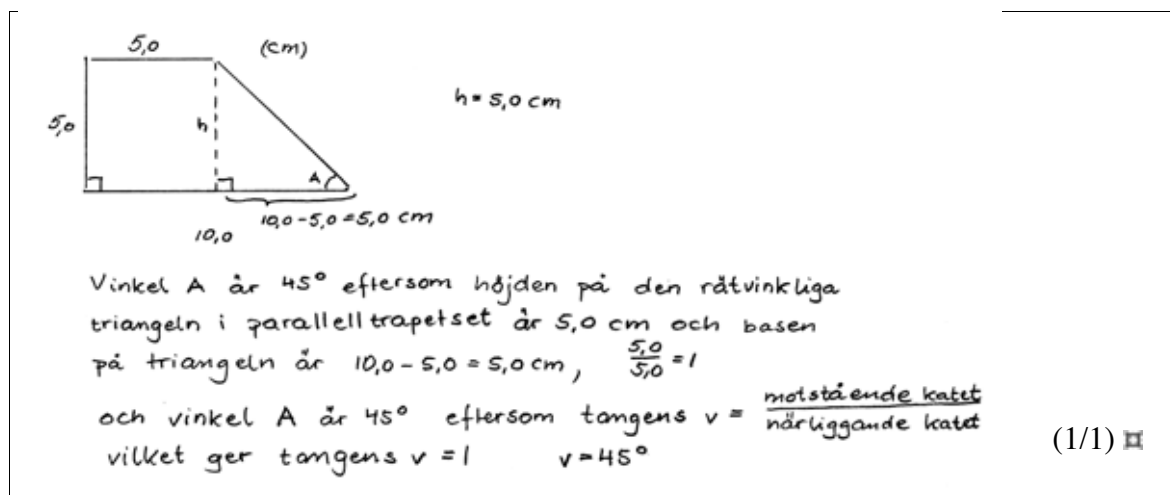 5,0 (cm)
h = 5,0 cm
5,0
h
A
10,0 - 5,0 = 5,0 cm
10,0
Vinkel A är 45° eftersom höjden på den rätvinkliga
triangeln i parallelltrapetset är 5,0 cm och basen
på triangeln är 10,0 - 5,0 = 5,0 cm, 5,0/5,0 = 1
och vinkel A är 45° eftersom tangens v = motstående katet/närliggande katet
vilket ger tangens v = 1 v = 45°
(1/1) ¤